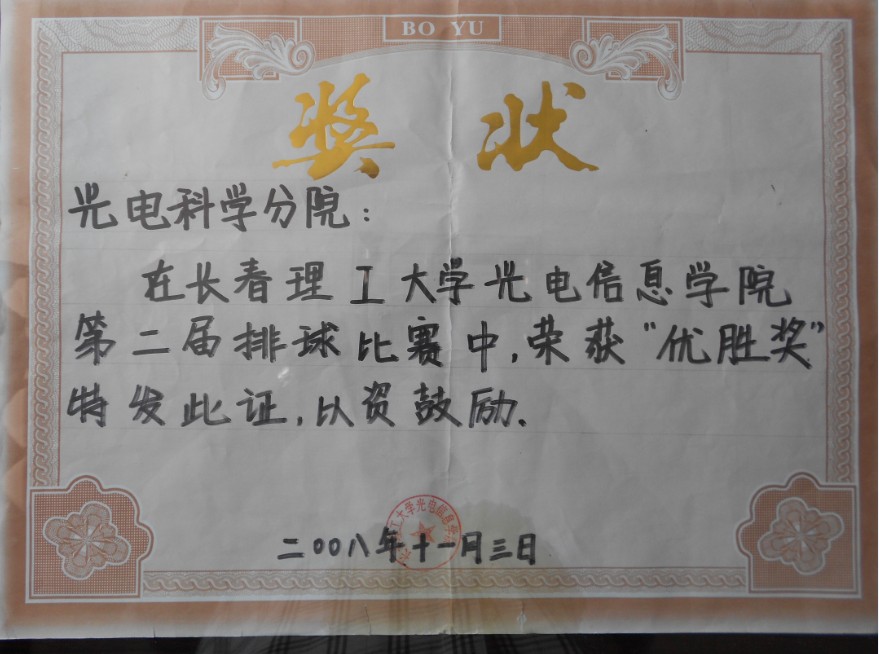 BO YU
奖 状
光电科学分院：
在长春理工大学光电信息学院
第二届排球比赛中，荣获"优胜奖"
特发此证，以资鼓励．
工大学光电信息学
二００八年十一月三日